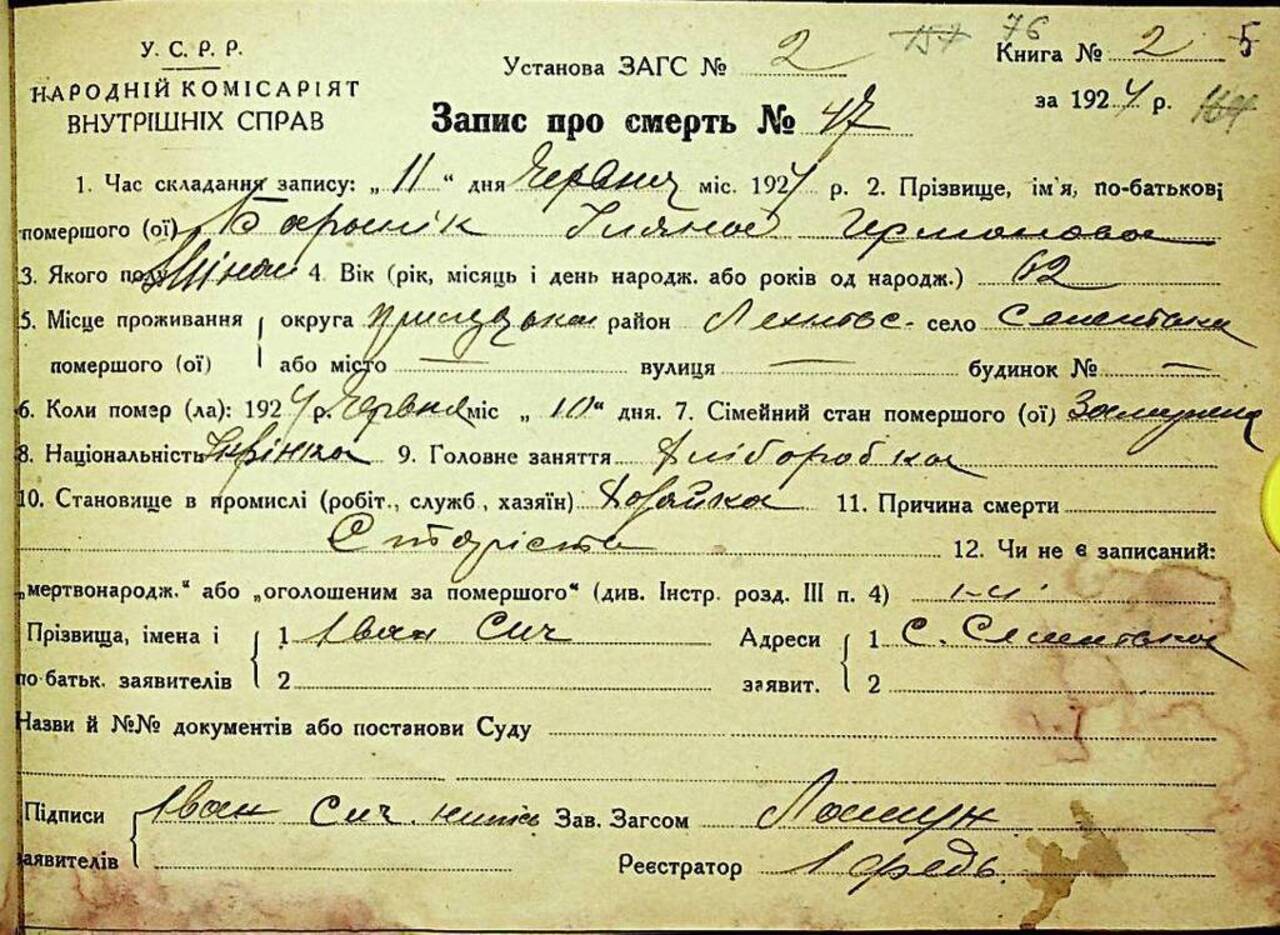 У. С. Р. Р.
НАРОДНІЙ КОМІСАРІЯТ
ВНУТРІШНІХ СПРАВ
Установа ЗАГС № 2
157 76
Книга № 2 5
за 1924 р. 164
Запис про смерть № 47
1. Час складання запису: „ 11 “ дня Червня міс. 1924 р. 2. Прізвище, ім'я, по-батькові
помершого (ої) Уляна
3. Якого полу Жіноч 4. Вік (рік, місяць і день народж. або років од народж.) 62
5. Місце проживання округа Прилуцька район село Сементовка
помершого (ої) або місто — вулиця — будинок № —
6. Коли помер (ла): 1924 р. Червня міс „ 10 “ дня. 7. Сімейний стан помершого (ої) Замужем
8. Національність Українка 9. Головне заняття Хліборобка
10. Становище в промислі (робіт., служб, хазяїн) Хазяйка 11. Причина смерти
Старість 12. Чи не є записаний:
„мертвонародж.“ або „оголошеним за помершого“ (див. Інстр. розд. III п. 4)
Прізвища, імена і 1 Іван Сич Адреси 1 С. Сементовка
по батьк. заявителів 2 заявит. 2
Назви й №№ документів або постанови Суду
Підписи Іван Сич Зав. Загсом
заявителів Реєстратор